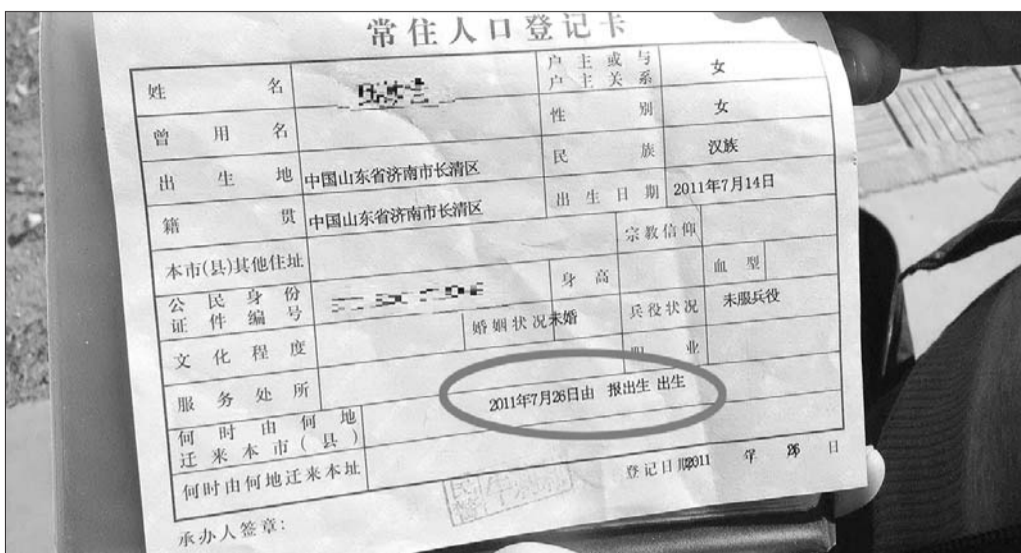 常住人口登记卡
姓名 户主或与户主关系 女
曾用名 性别 女
出生地 中国山东省济南市长清区 民族 汉族
籍贯 中国山东省济南市长清区 出生日期 2011年7月14日
本市(县)其他住址 宗教信仰
公民身份证件编号 身高 血型
文化程度 婚姻状况 未婚 兵役状况 未服兵役
服务处所 职业
何时由何地迁来本市(县) 2011年7月26日由 报出生 出生
何时由何地迁来本址
承办人签章: 登记日期 2011 年 26 日